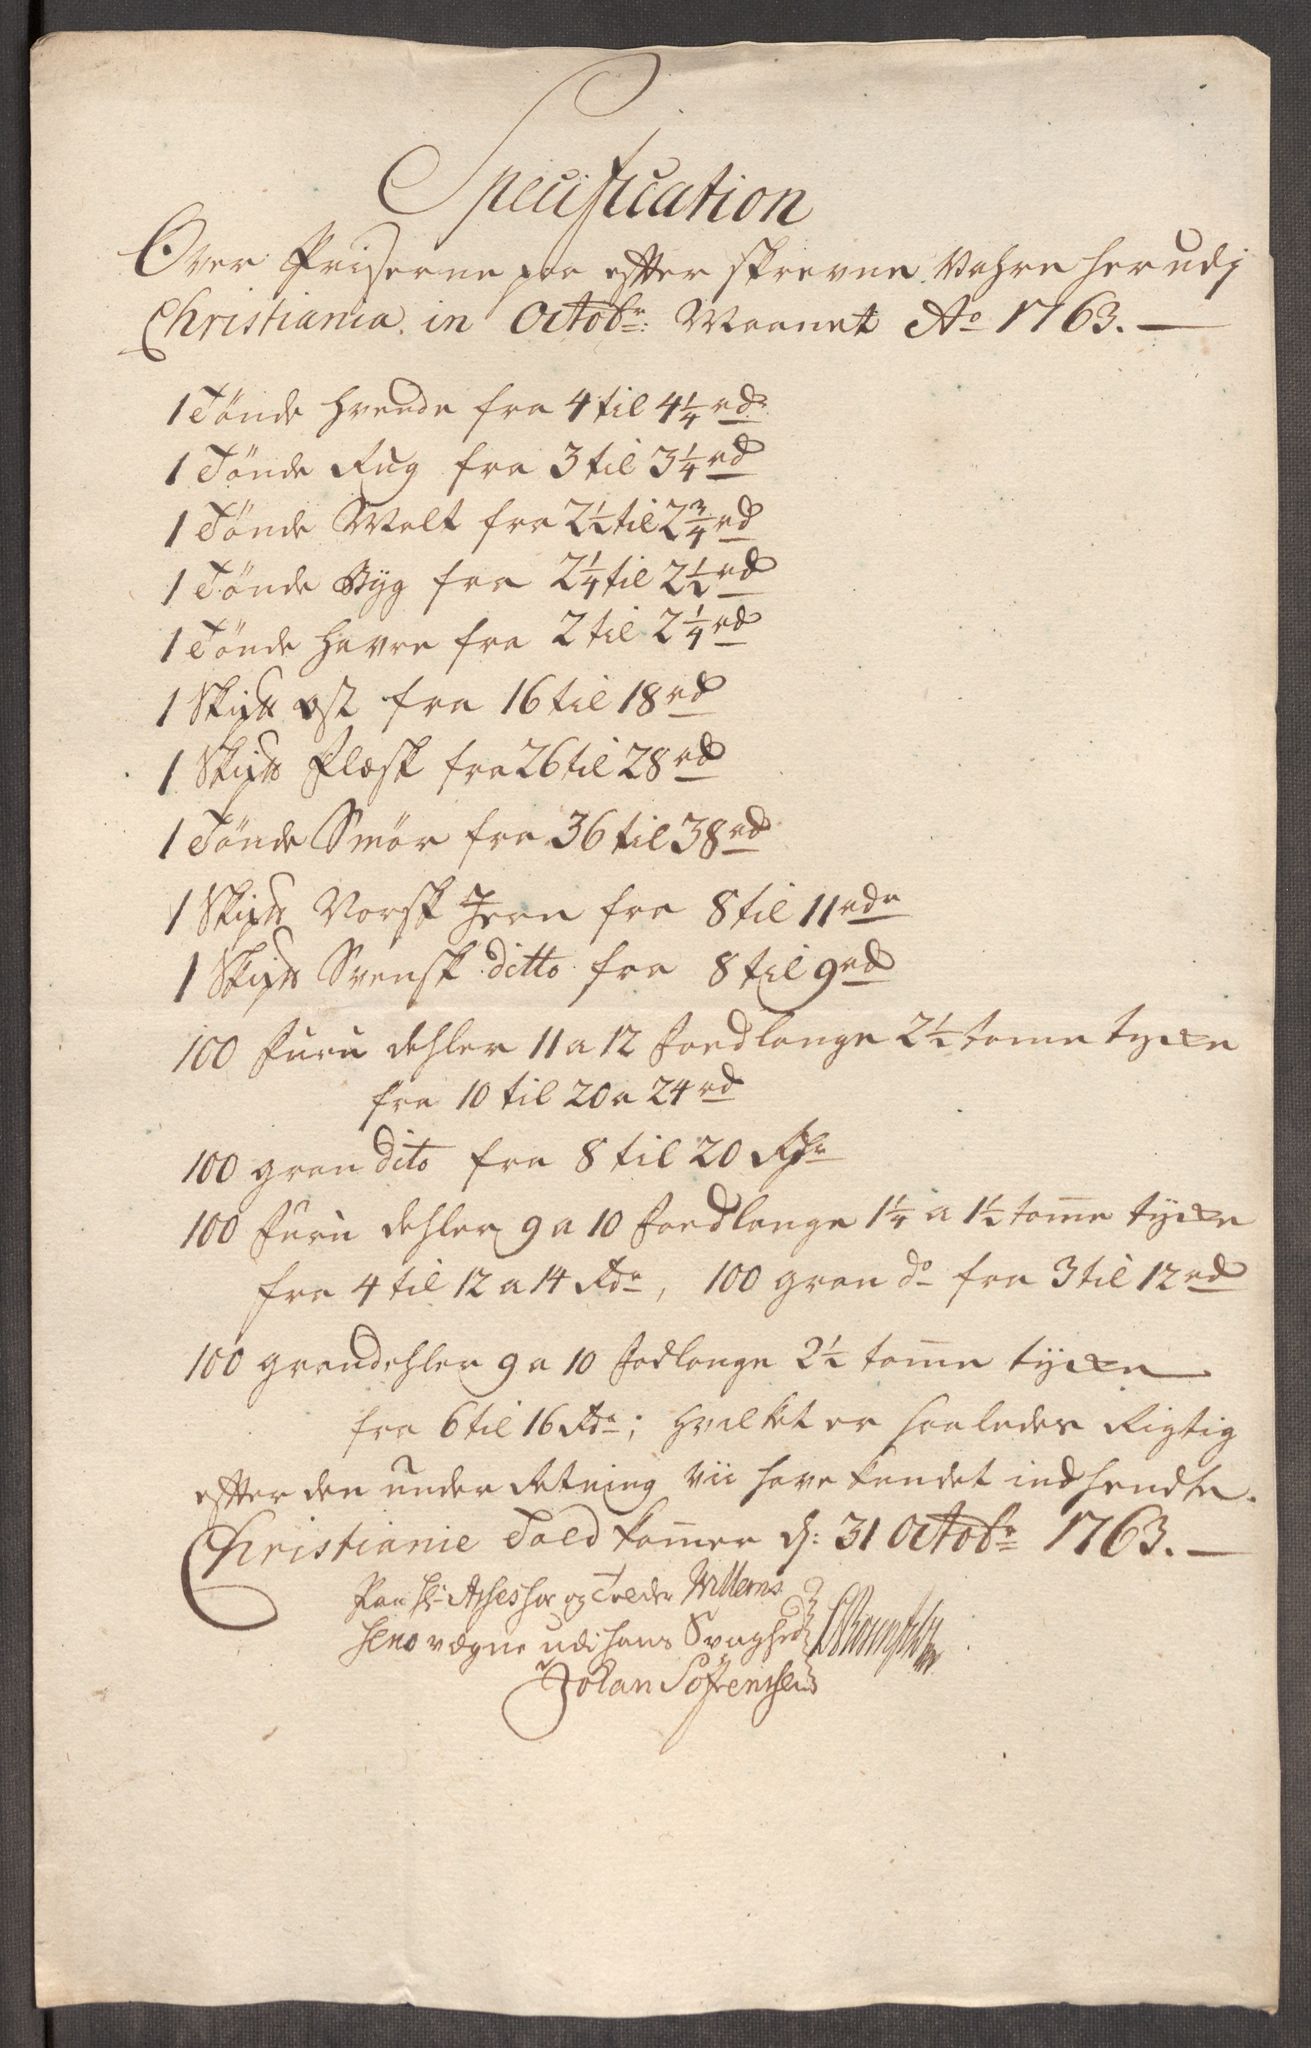 Specification
Over Priserne paa efter skrevne Vahre her udj
Christiania in Octobr: Maanet Ao 1763. —
1 Tönde Hvede fra 4 til 4¼ rdr
1 Tönde Rug fra 3 til 3¼ rd
1 Tönde Malt fra 2½ til 2¾ rd
1 Tönde Byg fra 2¼ til 2½ rd
1 Tönde Havre fra 2 til 2¼ rd
1 Skip℔ ost fra 16 til 18 rd
1 Skip℔ Flæsk fra 26 til 28 rd
1 Tönde Smör fra 36 til 38 rd
1 Skip℔ Norsk Jern fra 8 til 11 rdr
1 Skip℔ Svensk ditto fra 8 til 9 rd
100 furu dehler 11 a 12 foedlange 2½ tome tycke
fra 10 til 20 a 24 rd
100 gran dito fra 8 til 20 Rdr
100 furu dehler 9 a 10 foedlange 1¼ a 1½ tom̄e tycke
fra 4 til 12 a 14 Rdr, 100 gran do fra 3 til 12 rd
100 grandehler 9 a 10 fodlange 2½ tom̄e tycke
fra 6 til 16 Rdr; hvilket er saaledes Rigtig
effter den under Retning vii have kundet indhendte.
Christianie Told kam̄er d: 31 Octobr 1763. —
Paa Hr Assessor og Tolder Willems
hens vægne udi hans Svaghed
Johan Sörenssen